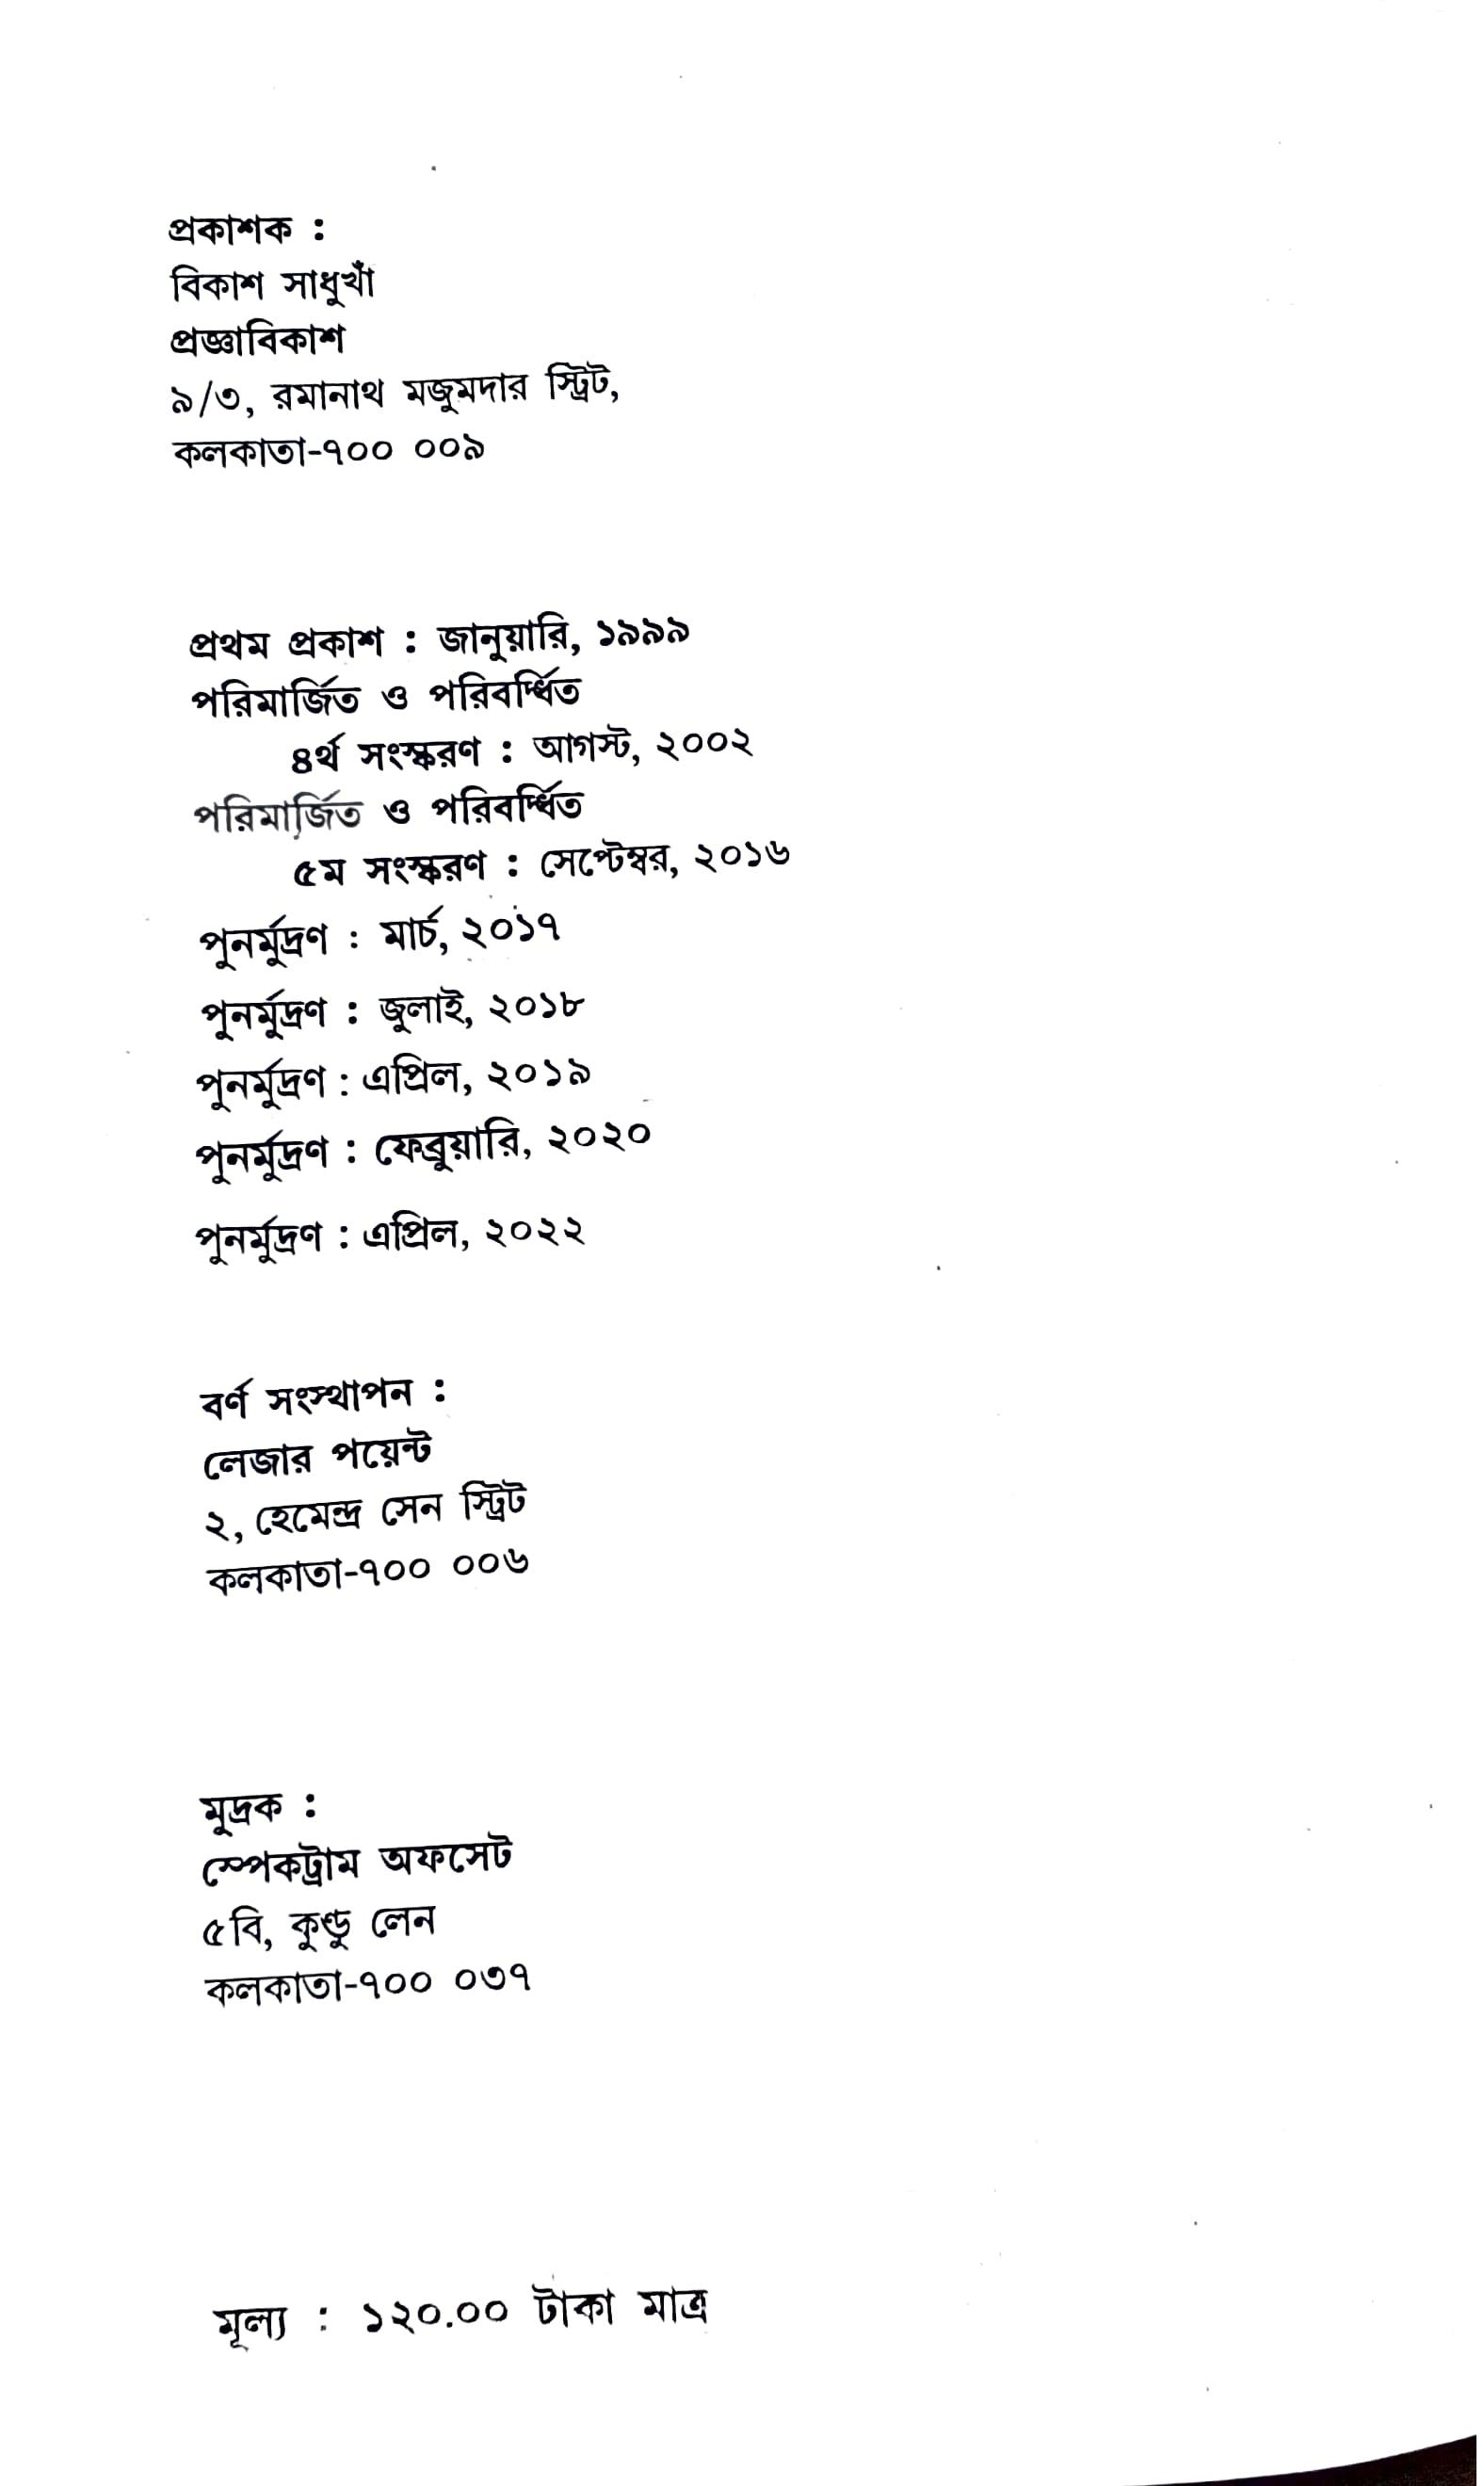 প্রকাশক :
বিকাশ সাধুখাঁ
প্রজ্ঞাবিকাশ
৯/৩, রমানাথ মজুমদার স্ট্রিট,
কলকাতা-৭০০ ০০৯
প্রথম প্রকাশ : জানুয়ারি, ১৯৯৯
পরিমার্জিত ও পরিবর্দ্ধিত
৪র্থ সংস্করণ : আগস্ট, ২০০২
পরিমার্জিত ও পরিবর্দ্ধিত
৫ম সংস্করণ : সেপ্টেম্বর, ২০১৬
পুনর্মুদ্রণ : মার্চ, ২০১৭
পুনর্মুদ্রণ : জুলাই, ২০১৮
পুনর্মুদ্রণ : এপ্রিল, ২০১৯
পুনর্মুদ্রণ : ফেব্রুয়ারি, ২০২০
পুনর্মুদ্রণ : এপ্রিল, ২০২২
বর্ণ সংস্থাপন :
লেজার পয়েন্ট
২, হেমেন্দ্র সেন স্ট্রিট
কলকাতা-৭০০ ০০৬
মুদ্রক :
স্পেকট্রাম অফসেট
৫বি, কুণ্ডু লেন
কলকাতা-৭০০ ০৩৭
মূল্য : ১২০.০০ টাকা মাত্র